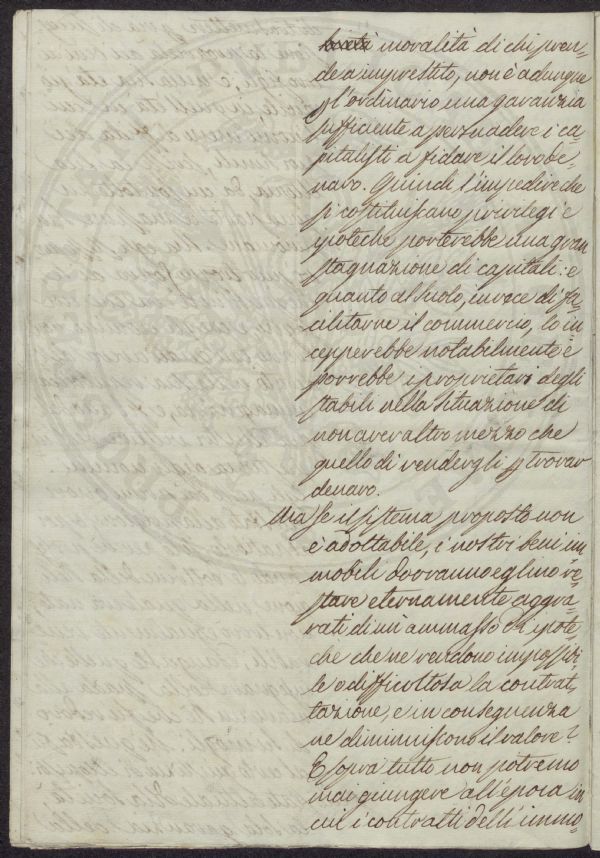 moralità di chi pren-
de a imprestito, non è adunque
p l'ordinario una garanzia
sufficiente a persuadere i ca-
pitalisti a fidare il loro de-
naro. Quindi l'impedire che
si costituiscano privilegi e
ipoteche porterebbe una gran
stagnazione di capitali: e
quanto al suolo, invece di fa-
cilitarne il commercio, lo in
cepperebbe notabilmente e
porrebbe i proprietarj degli
stabili nella situazione di
non aver altro mezzo che
quello di vendergli p trovar
denaro.
Ma se il sistema proposto non
è adottabile, i nostri beni im
mobili dovranno eglino re-
stare eternamente aggra-
vati di un' ammasso di ipote-
che che ne rendono impossibi
le o difficoltosa la contrat-
tazione, e in conseguenza
ne diminuiscono il valore?
E sopra tutto non potremo
mai giungere all'epoca in
cui i contratti delli immo-